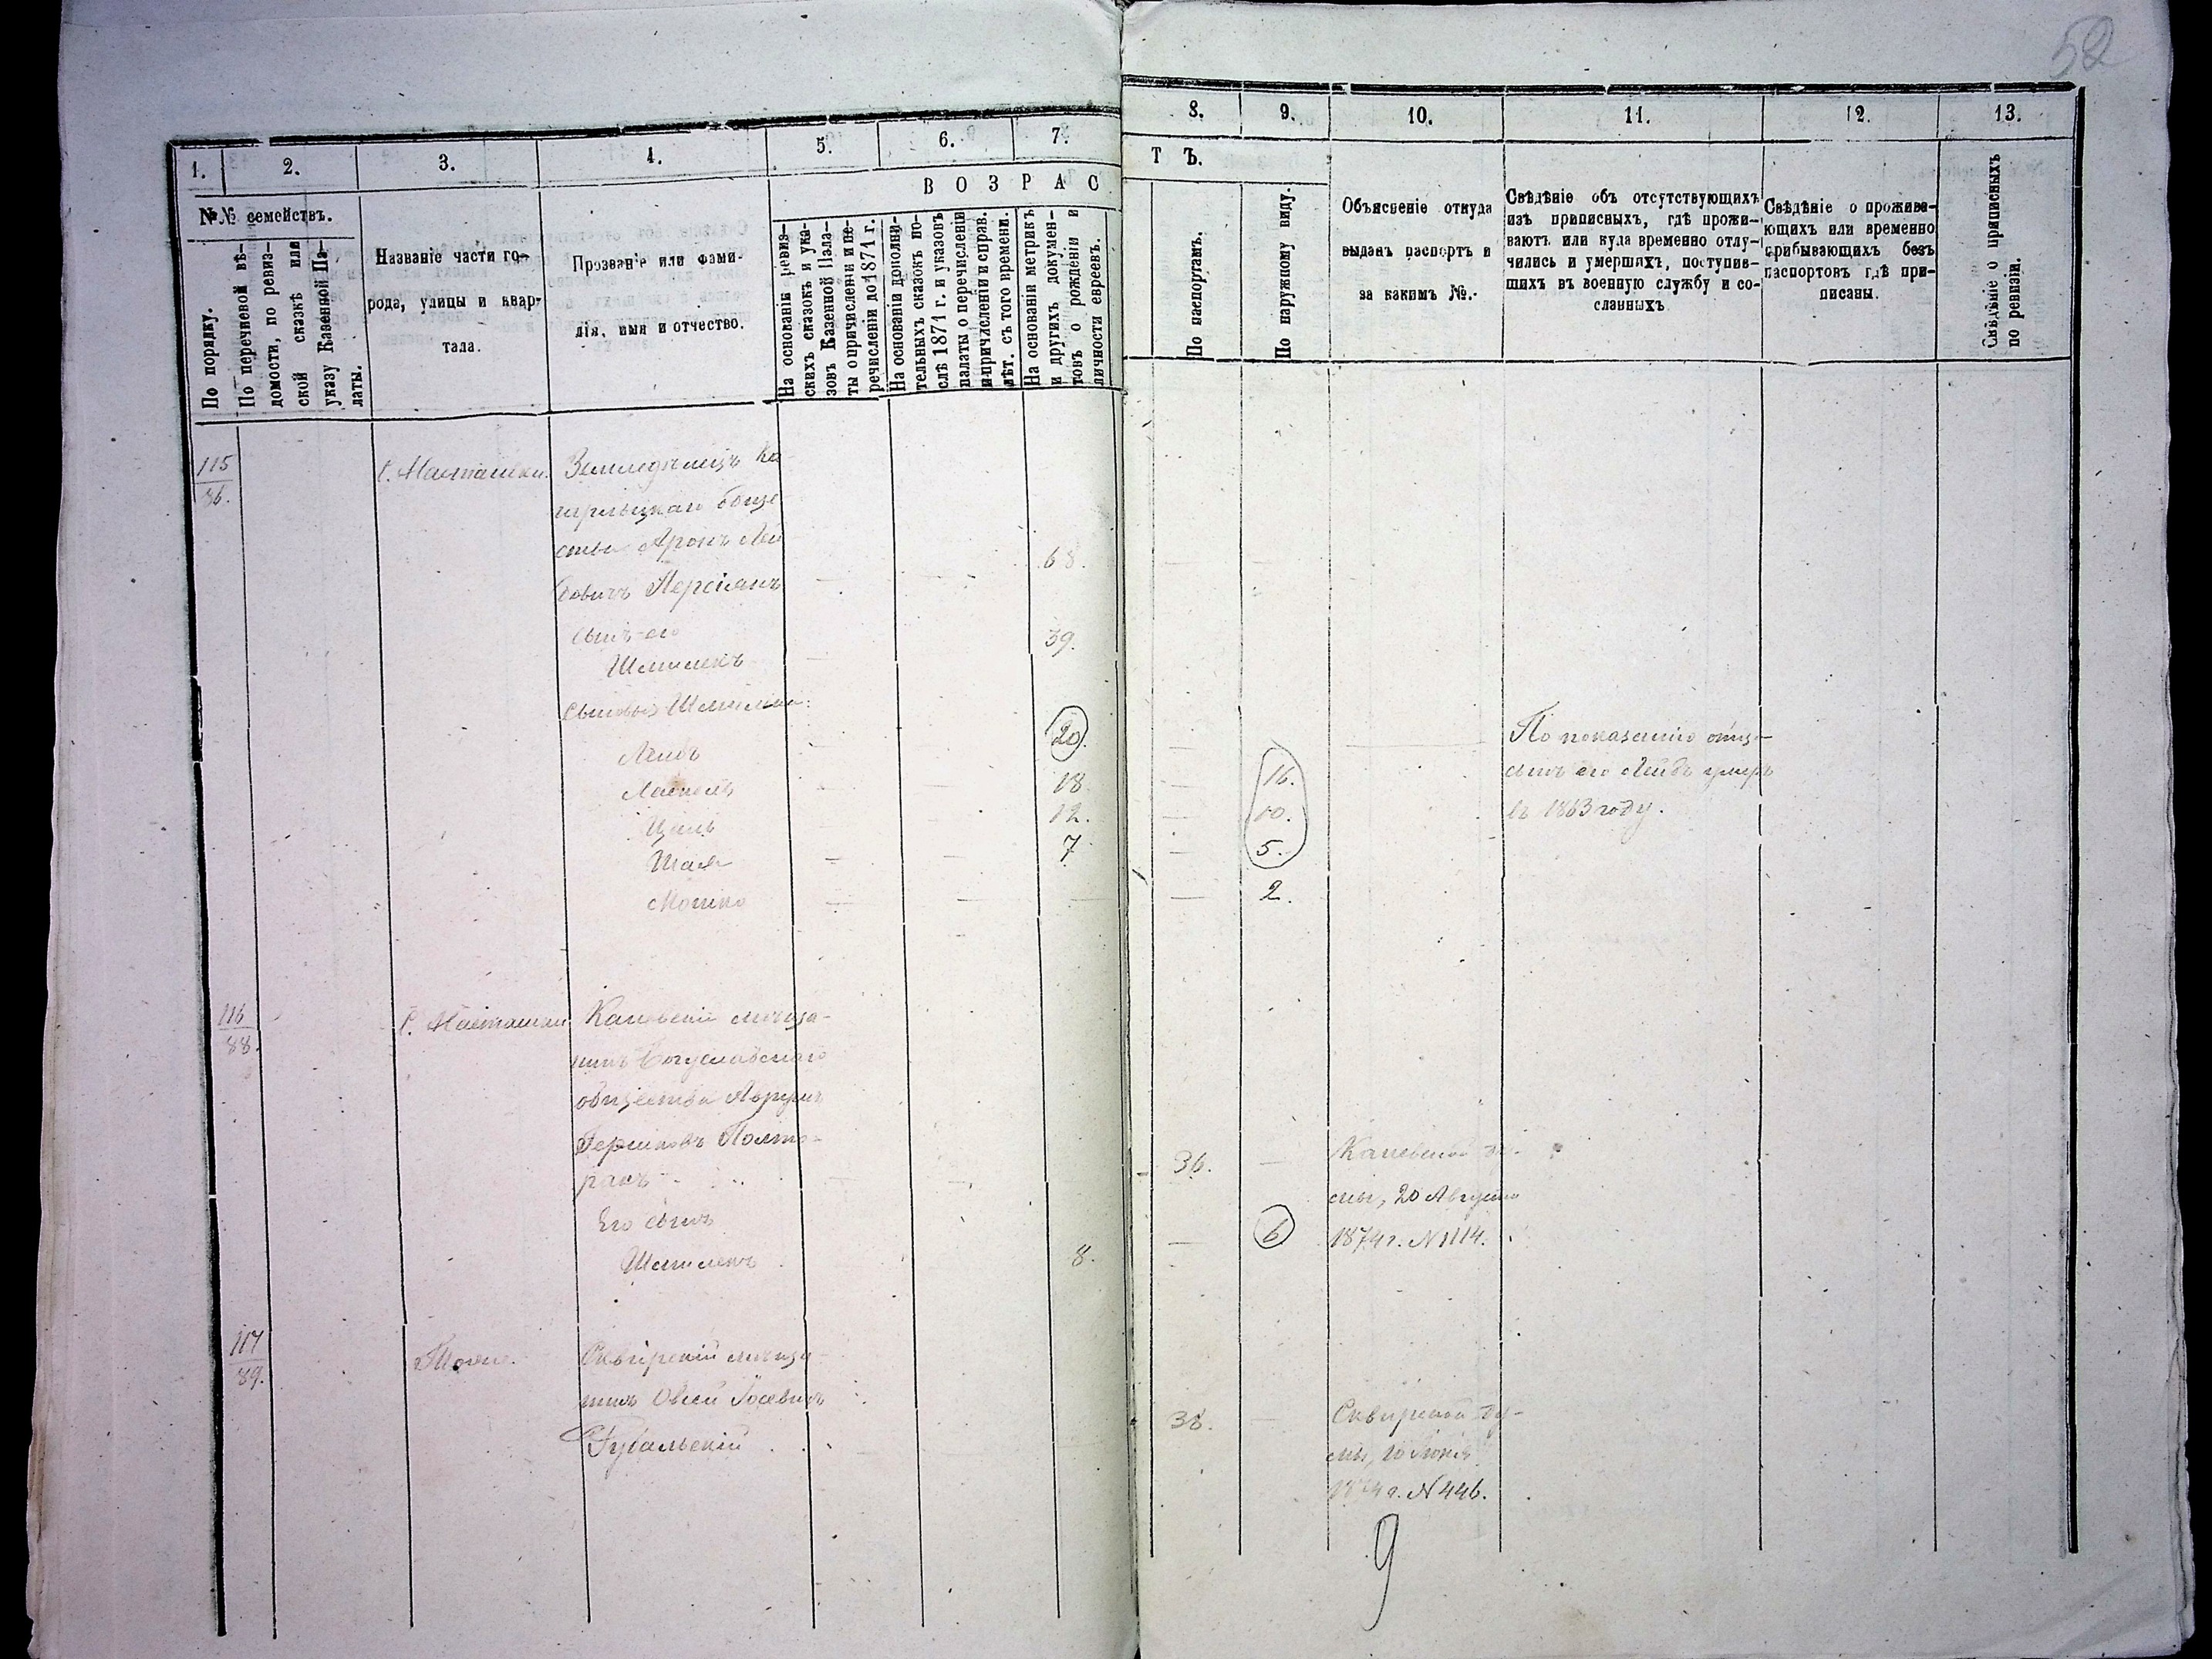 52
1.
2.
3.
4.
5.
6.
7.
8.
9.
10.
11.
12.
13.
№№ семействъ.
По порядку.
По перечневой вѣ-
домости, по ревиз-
ской сказкѣ или
указу Казенной Па-
латы.
Названіе части го-
рода, улицы и квар-
тала.
Прозваніе или фами-
лія, имя и отчество.
В О З Р А С
Т Ъ.
На основаніи ревиз-
скихъ сказокъ и ука-
зовъ Казенной Пала-
ты о причисленіи и пе-
речисленіи до 1871 г.
На основаніи дополни-
тельныхъ сказокъ по-
слѣ 1871 г. и указовъ
палаты о перечисленіи
и причисленіи и справ.
лѣт. съ того времени.
На основаніи метрикъ
и другихъ докумен-
товъ о рожденіи и
личности евреевъ.
По паспортамъ.
По наружному виду.
Объясненіе откуда
выданъ паспортъ и
за какимъ №.
Свѣдѣніе объ отсутствующихъ
изъ приписныхъ, гдѣ прожи-
ваютъ или куда временно отлу-
чились и умершихъ, поступив-
шихъ въ военную службу и со-
сланныхъ
Свѣдѣніе о прожива-
ющихъ или временно
прибывающихъ безъ
паспортовъ гдѣ при-
писаны.
Свѣдѣніе о приписныхъ
по ревизіи.
115
С. Масташки.
Земледѣлецъ Ка
гарлыцкаго обще
ства Аронъ Лей
бовичъ
68.
сынъ его
Шмилекъ
39.
Сыновья Шмилека:
Лейбъ
20.
18
16.
12.
10.
Шая
7
5.
Мошко
2.
По показанію отца
сынъ его Лейбъ умеръ
въ 1863 году.
116
88.
С. Масташки
Каневскій мѣща-
нинъ Богуславскаго
общества
Гершковъ Полто-
ракъ
36.
Его сынъ
Шмилекъ
8.
6
Каневской ду-
мы, 20 Августа
1874 г. №1114.
117
89.
Тоже.
Сквирскій мѣща-
нинъ Овсей
38.
Сквирской Ду-
мы, 10
1874 г. №446.
9